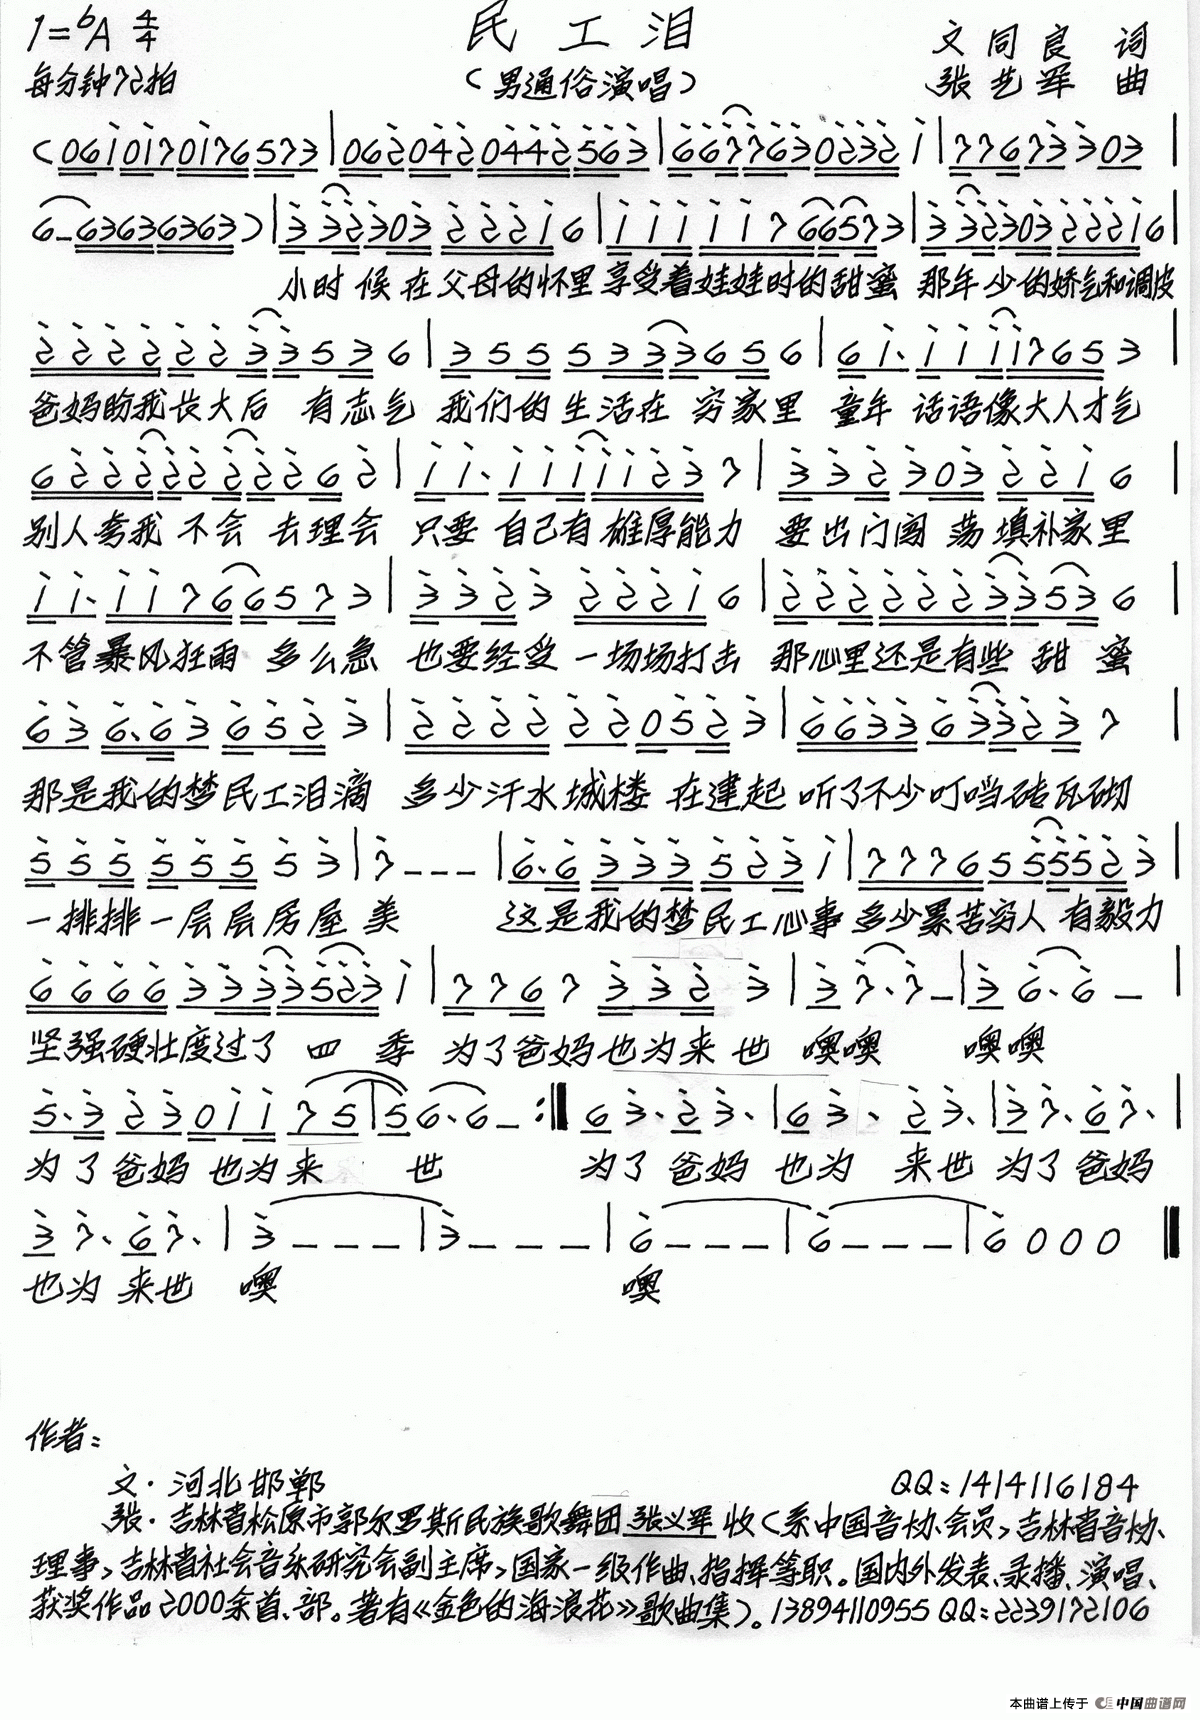 1=bA 4/4
民工泪
文同良 词
每分钟72拍
(男通俗演唱)
张艺军 曲
(0610170176573 | 0620420442563 | 6677630232 1 | 77673303 |
6-63636363) | 332303 22216 | 11111766573 | 33230322216 |
小时候在父母的怀里 享受着娃娃时的甜蜜 那年少的娇气和调皮
22222233536 | 3555333656 | 61·11117653 |
爸妈盼我长大后 有志气 我们的生活在 穷家里 童年 话语像大人才气
6222222222 62 | 11·1111123 7 | 332303 2216 |
别人夸我 不会 去理会 只要 自己有雄厚能力 要出门闯 荡填补家里
11·117665 73 | 3323 22216 | 22222233536 |
不管暴风狂雨 多么急 也要经受一场场打击 那心里还是有些 甜 蜜
63 6·63 652 3 | 222222 0523 | 6633633237 |
那是我的梦民工泪滴 多少汗水城楼 在建起 听了不少叮当砖瓦砌
555 555 53 | 7--- | 6·6 333 523 1 | 7776555523 |
一排排一层层房屋 美 这是我的梦民工心事 多少累苦穷人 有毅力
66663333523 1 | 7767 332 3 | 37·7- | 36·6- |
坚强硬壮度过了 四 季 为了爸妈也为来 世 噢噢 噢噢
5·3 23011 75 | 56·6- :‖ 63·23· | 63·23· | 37·67· |
为了爸妈 也为来 世 为了 爸妈 也为 来世 为了爸妈
37·67· | 3--- | 3--- | 6--- | 6--- | 6000 ‖
也为 来世 噢 噢
作者:
文·河北邯郸
QQ:1414116184
张·吉林省松原市郭尔罗斯民族歌舞团张义军收(系中国音协、会员,吉林省音协、
理事,吉林省社会音乐研究会副主席,国家一级作曲、指挥等职。国内外发表、录播、演唱、
获奖作品2000余首、部。著有《金色的海浪花》歌曲集)。13894110955 QQ:2239172106
本曲谱上传于 中国曲谱网